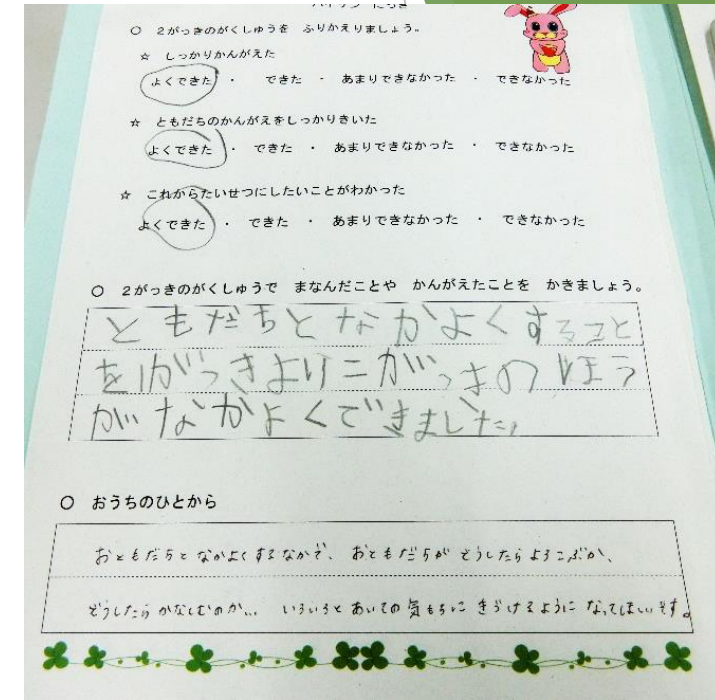 ○ 2がっきのがくしゅうを ふりかえりましょう。
☆ しっかりかんがえた
よくできた ・ できた ・ あまりできなかった ・ できなかった
☆ ともだちのかんがえをしっかりきいた
よくできた ・ できた ・ あまりできなかった ・ できなかった
☆ これからたいせつにしたいことがわかった
よくできた ・ できた ・ あまりできなかった ・ できなかった
○ 2がっきのがくしゅうで まなんだことや かんがえたことを かきましょう。
ともだちとなかよくすること
を1がっきより二がっきのほう
がなかよくできました。
○ おうちのひとから
おともだちと なかよくするなかで、 おともだちが どうしたら よろこぶか、
どうしたら かなしむのか… いろいろと あいての気もちに きづけるように なってほしいです。